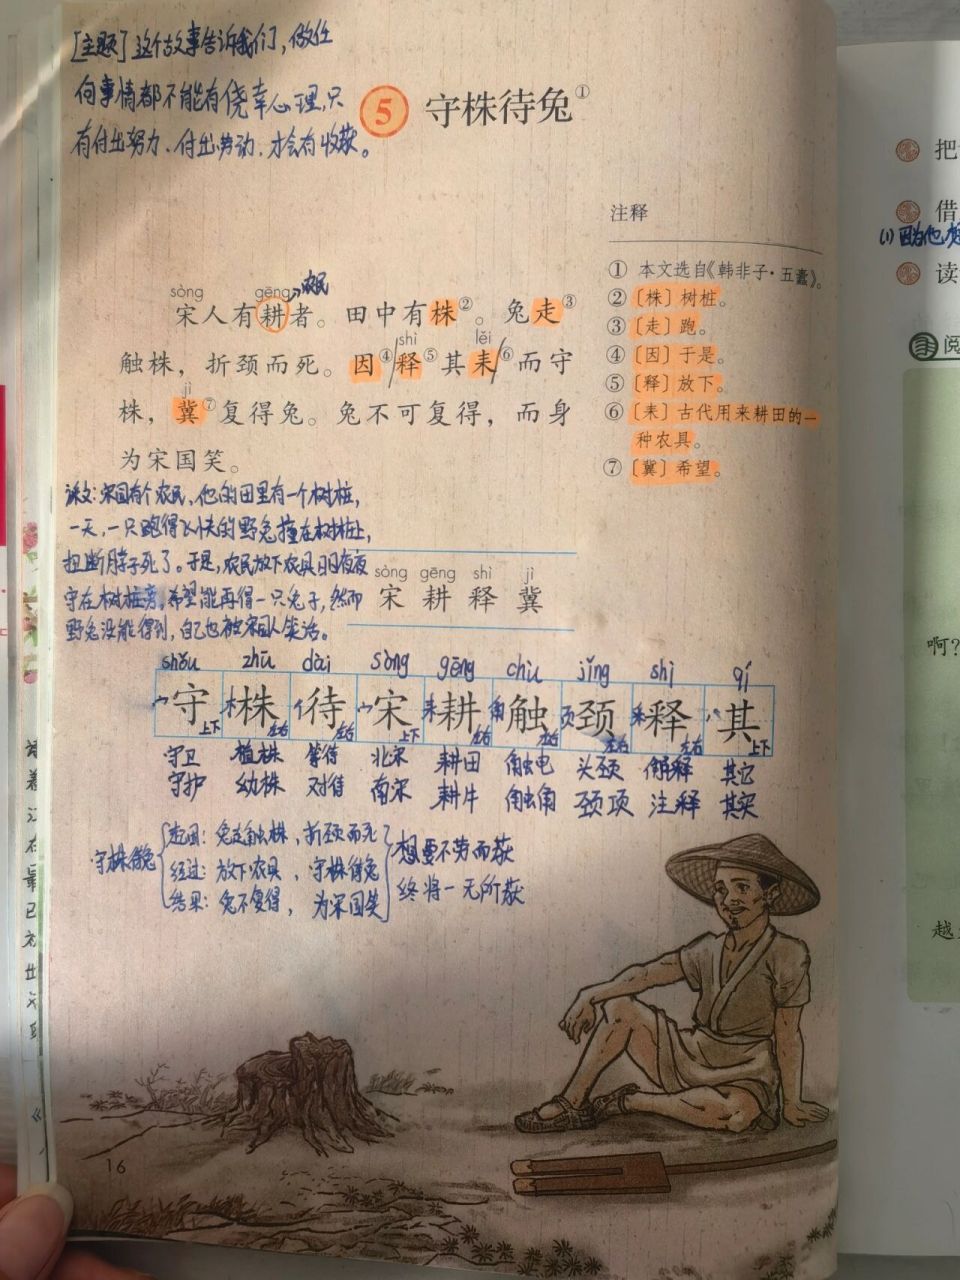 [主题]这个故事告诉我们，做任
何事情都不能有侥幸心理，只
有付出努力、付出劳动，才会有收获。
5 守株待兔①
注释
① 本文选自《韩非子·五蠹》。
②〔株〕树桩。
③〔走〕跑。
④〔因〕于是。
⑤〔释〕放下。
⑥〔耒〕古代用来耕田的一
种农具。
⑦〔冀〕希望。
农民
sòng gēng
宋人有耕者。田中有株②。兔走③
shì lěi
触株，折颈而死。因④释⑤其耒⑥而守
jì
株，冀⑦复得兔。兔不可复得，而身
为宋国笑。
译文：宋国有个农民，他的田里有一个树桩，
一天，一只跑得飞快的野兔撞在树桩上，
扭断脖子死了。于是，农民放下农具日日夜夜
守在树桩旁，希望能再得一只兔子，然而
野兔没能得到，自己也被宋国人笑话。
sòng gēng shì jì
宋 耕 释 冀
shǒu zhū dài sòng gēng chù jǐng shì qí
守 株 待 宋 耕 触 颈 释 其
上下 左右 左右 上下 左右 左右 左右 左右 上下
守卫 植株 等待 北宋 耕田 触电 头颈 解释 其它
守护 幼株 对待 南宋 耕牛 触角 颈项 注释 其实
守株待兔
起因：兔走触株，折颈而死
经过：放下农具，守株待兔
结果：兔不复得，为宋国笑
想要不劳而获
终将一无所获
16
把
借
(1)因为他
读
阅
啊？
越